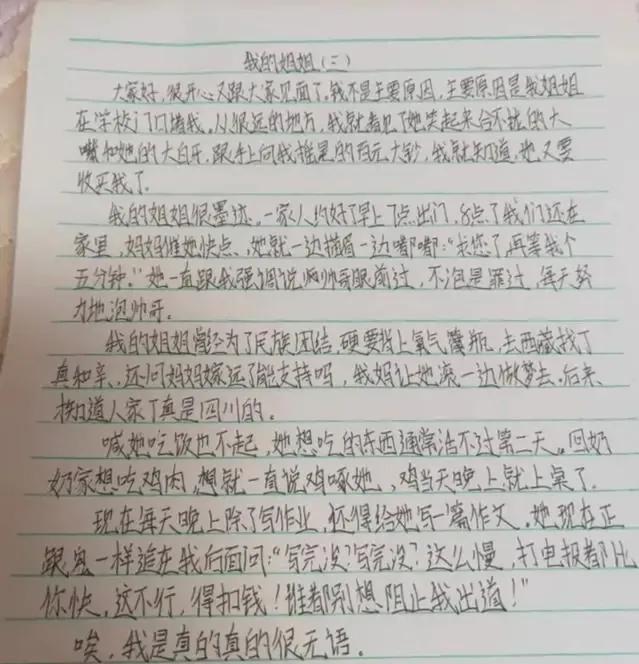 我的姐姐(二)
大家好,很开心又跟大家见面了,钱不是主要原因,主要原因是我姐姐
在学校门口堵我,从很远的地方,我就看见了她笑起来合不拢的大
嘴和她的大白牙,跟手上向我摇晃的百元大钞,我就知道,她又要
收买我了。
我的姐姐很墨迹,一家人约好了早上7点出门,8点了我们还在
家里,妈妈催她快点,她就一边描眉一边嘟嘟:“求您了,再等我个
五分钟。”她一直跟我强调说帅哥眼前过,不泡是罪过,每天努
力地泡帅哥。
我的姐姐曾经为了民族团结,硬要背上氧气罐瓶,去西藏找丁
真和亲,还问妈妈嫁远了能支持吗,我妈让她滚一边做梦去。后来
才知道人家丁真是四川的。
喊她吃饭也不起,她想吃的东西通常活不过第二天。回奶
奶家想吃鸡肉,想就一直说鸡啄她,鸡当天晚上就上桌了。
现在每天晚上除了写作业,还得给她写一篇作文,她现在正
跟鬼一样追在我后面问:“写完没?写完没?这么慢,打电报都比
你快,这不行,得扣钱!谁都别想阻止我出道!”
唉,我是真的真的很无语。